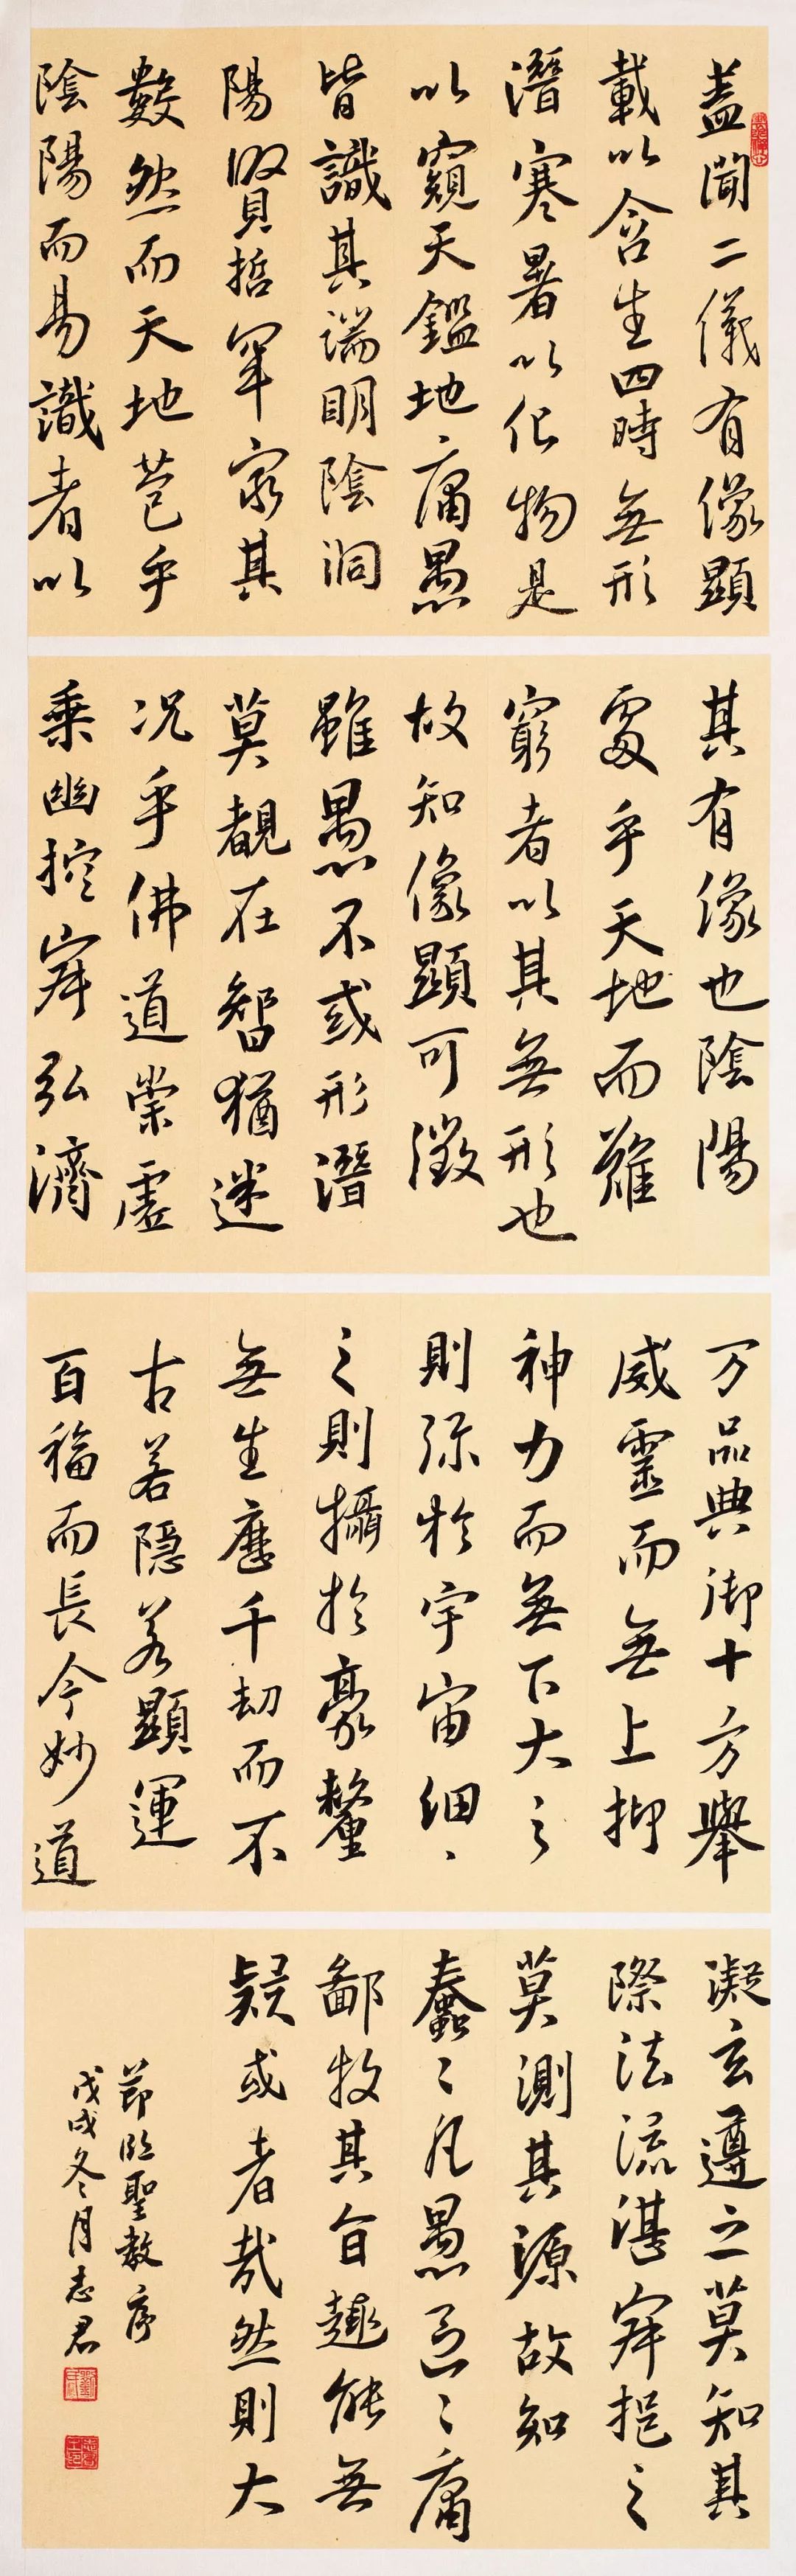 蓋聞二儀有像顯
載以含生四時無形
潛寒暑以化物是
以窺天鑑地庸愚
皆識其端明陰洞
陽賢哲罕窮其
數然而天地苞乎
陰陽而易識者以
其有像也陰陽
處乎天地而難
窮者以其無形也
故知像顯可徵
雖愚不惑形潛
莫覩在智猶迷
况乎佛道崇虛
乘幽控寂弘濟
万品典御十方舉
威靈而無上抑
神力而無下大之
則弥於宇宙細、
之則攝於豪釐
無生應千劫而不
古若隱若顯運
百福而長今妙道
凝玄遵之莫知其
際法流湛寂挹之
莫測其源故知
蠢〻凡愚區〻庸
鄙投其旨趣能無
疑或者哉然則大
節臨聖教序
戊戌冬月志君